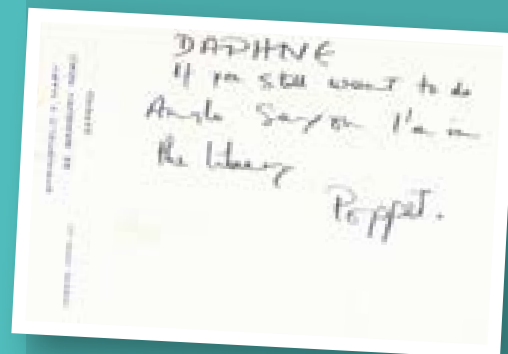 DAPHNE
If you still want to do
Anglo Saxon I'm in
the library
Poppet.